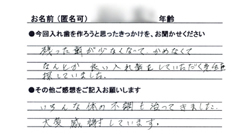 お名前(匿名可) 年齢
●今回入れ歯を作ろうと思ったきっかけを、お聞かせください
残った歯が少なくなって、かめなくて
なんとか良い入れ歯をしていただく先生を
探していました。
●その他ご感想をご記入お願いします
いろんな体の不調も治ってきました。
大変感謝しています。